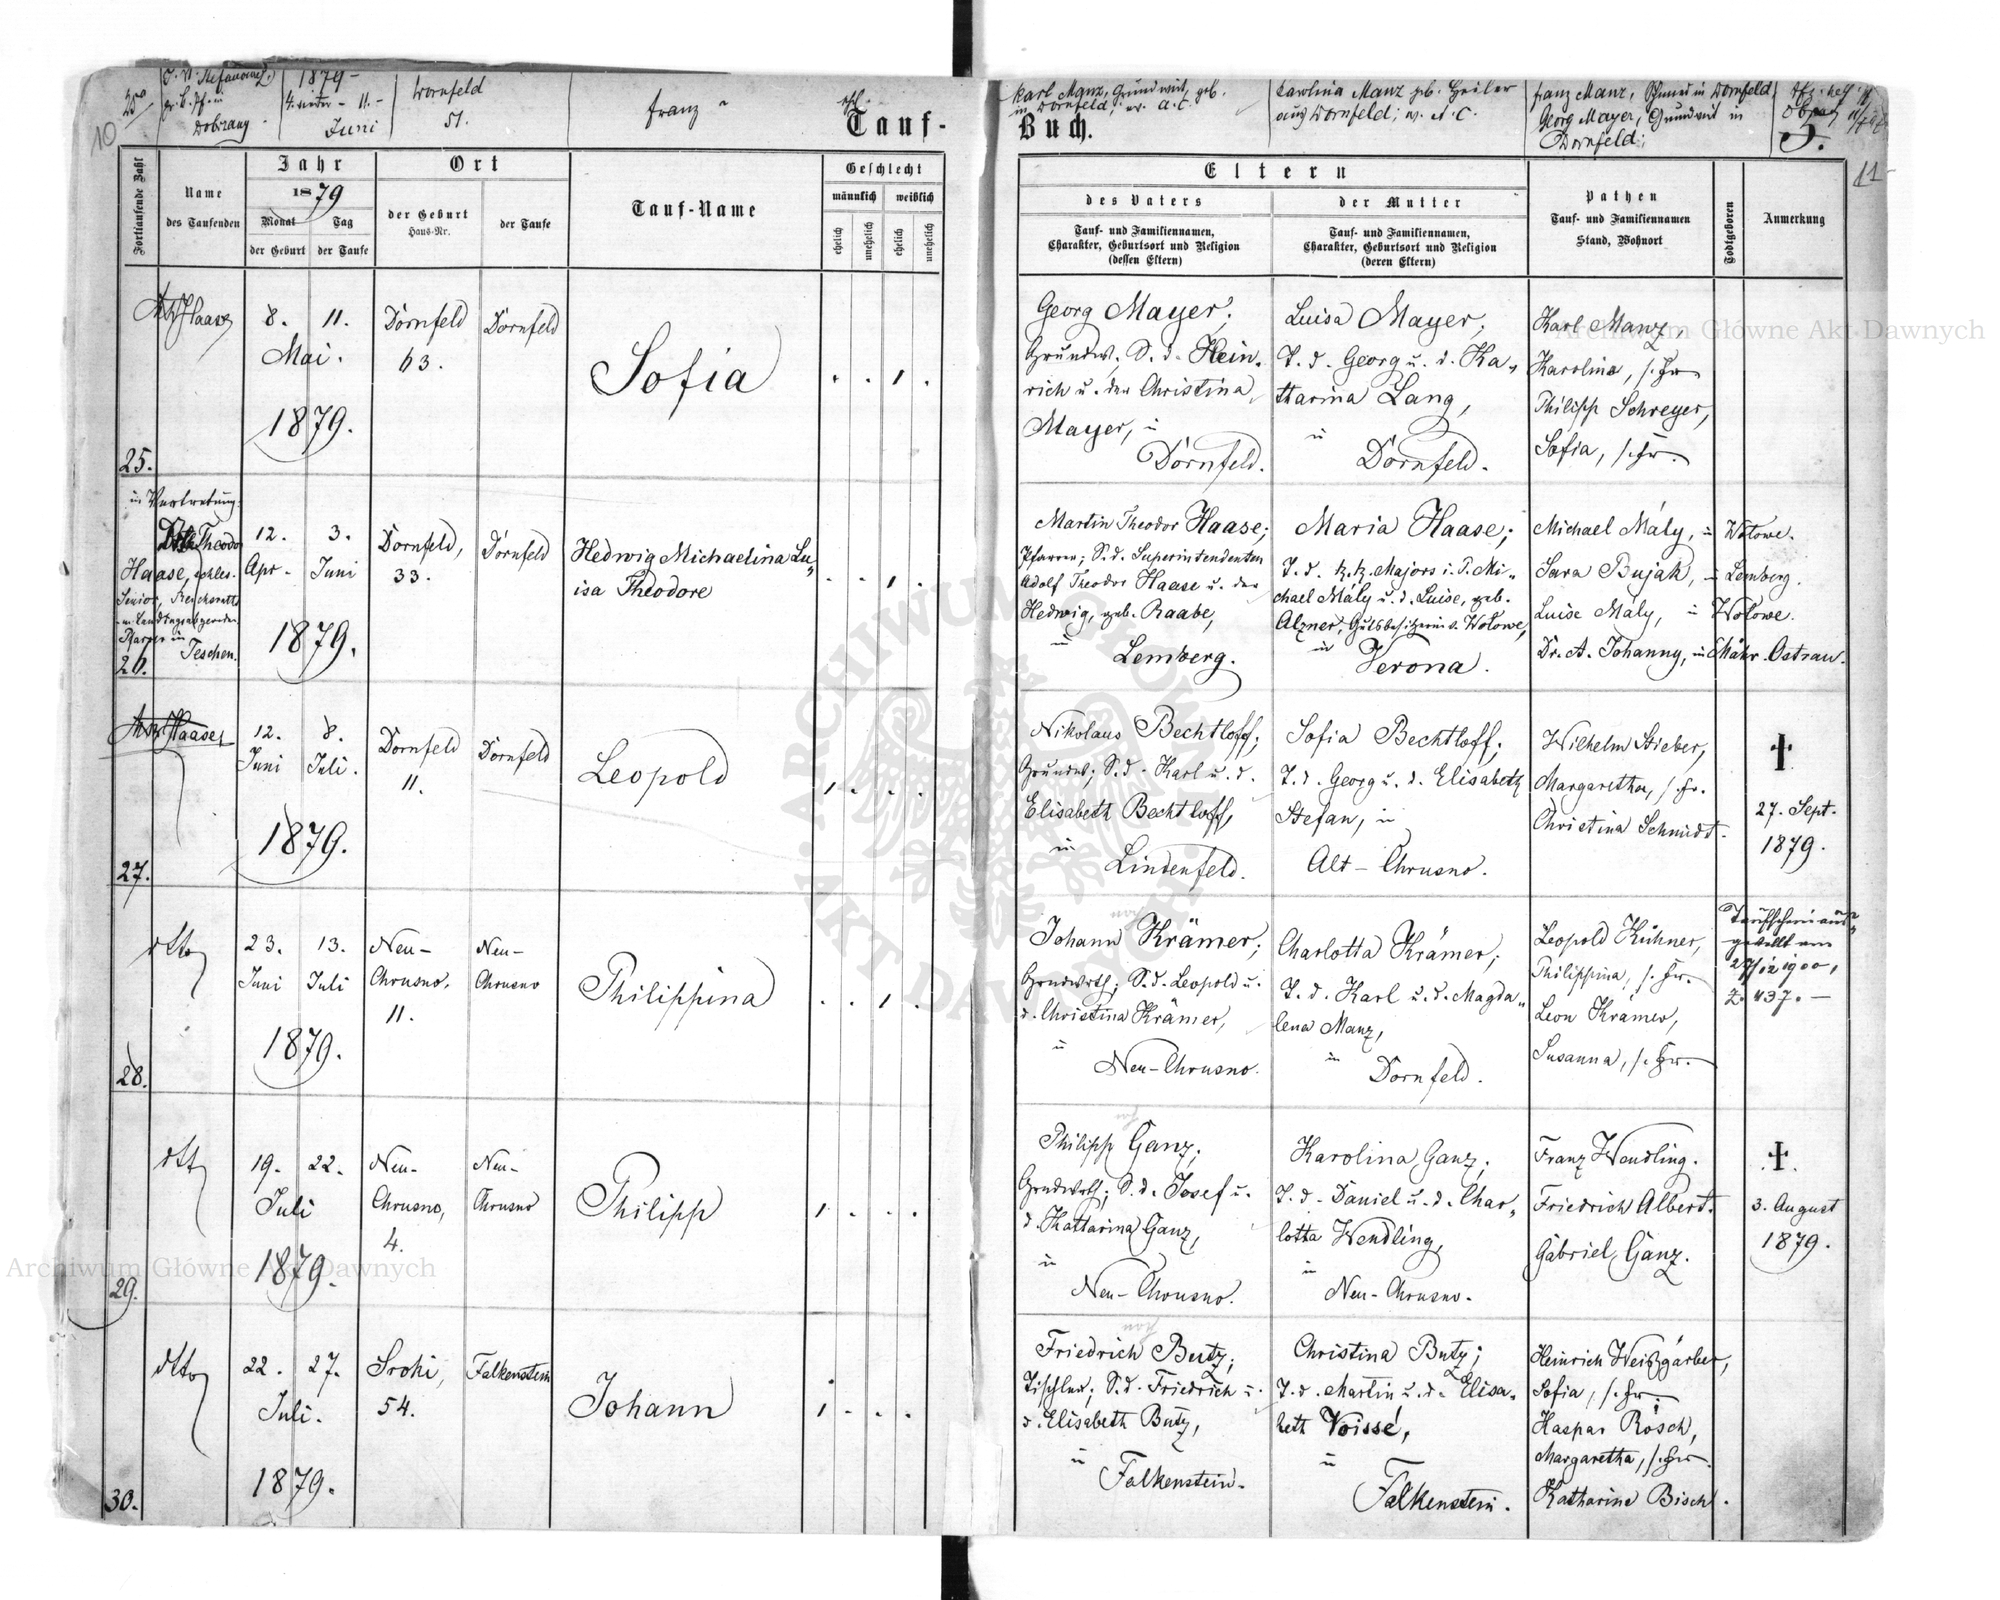 25a
J. N. Stefanowicz
gr. k. Pf. in
Dobrzany
1879 -
4. - 11. -
Juni
Dornfeld
51.
Franz
ehl.
Tauf-
10
Fortlaufende Zahl
Name
des Taufenden
Jahr
1879
Monat
Tag
der Geburt
der Taufe
Ort
der Geburt
Haus-Nr.
der Taufe
Tauf-Name
Geschlecht
männlich
weiblich
ehelich
unehelich
ehelich
unehelich
Haase
8. 11.
Mai.
1879.
Dornfeld
63.
Dornfeld
Sofia
25.
in Vertretung:
Dr. Theodor
Haase, schles.
Senior, Reichsraths
u. Landtagsabgeordn.
Pfarrer in
Teschen.
12. 3.
Apr. Juni
1879.
Dornfeld,
33.
Dornfeld
Hedwig Michaelina Lu-
isa Theodore
26.
Haase
12. 8.
Juni Juli.
1879.
Dornfeld
11.
Dornfeld
Leopold
27.
dtto
23. 13.
Juni Juli
1879.
Neu-
Chrusno,
11.
Neu-
Chrusno
Philippina
28.
dtto
19. 22.
Juli
1879.
Neu-
Chrusno,
4.
Neu-
Chrusno
Philipp
29.
dtto
22. 27.
Juli.
1879.
Sroki,
54.
Falkenstein
Johann
30.
Karl Manz, Grundwirt, geb.
in Dornfeld, ev. A. C.
Karolina Manz geb. Heiler
aus Dornfeld; ev. A. C.
Franz Manz, Schmied in Dornfeld
Georg Mayer, Grundwirt in
Dornfeld;
Buch.
5.
11
Eltern
des Vaters
der Mutter
Tauf- und Familiennamen,
Charakter, Geburtsort und Religion
(dessen Eltern)
Tauf- und Familiennamen,
Charakter, Geburtsort und Religion
(deren Eltern)
Pathen
Tauf- und Familiennamen
Stand, Wohnort
Todtgeboren
Anmerkung
Georg Mayer,
Grundw., S. d. Hein-
rich u. der Christina
Mayer, in
Dornfeld.
Luisa Mayer,
T. d. Georg u. d. Ka-
tharina Lang,
in
Dornfeld.
Karl Manz,
Karolina, s. Fr.
Philipp Schreyer,
Sofia, s. Fr.
Martin Theodor Haase;
Pfarrer; S. d. Superintendenten
Adolf Theodor Haase u. der
Hedwig, geb. Raabe,
in
Lemberg.
Maria Haase;
T. d. k. k. Majors i. P. Mi-
chael Mály u. d. Luise, geb.
Alzner, Gutsbesitzerin v. Wołowe,
in
Verona.
Michael Mály, in Wołowe.
Sara Bujak, in Lemberg.
Luise Mály, in Wołowe.
Dr. A. Johanny, in Mähr. Ostrau.
Nikolaus Bechtloff;
Grundw; S. d. Karl u. d.
Elisabeth Bechtloff,
in
Lindenfeld.
Sofia Bechtloff;
T. d. Georg u. d. Elisabeth
Stefan, in
Alt-Chrusno.
Wilhelm Stieber,
Margaretha, s. Fr.
Christina Schmidt.
†
27. Sept.
1879.
Johann Krämer;
Grndwrth; S. d. Leopold u.
d. Christina Krämer,
in
Neu-Chrusno.
Charlotta Krämer;
T. d. Karl u. d. Magda-
lena Manz,
in
Dornfeld.
Leopold Kühner,
Philippina, s. Fr.
Leon Krämer,
Susanna, s. Fr.
Taufschein aus-
gestellt am
27/12 1900,
Z. 437. —
Philipp Ganz;
Grndwrth; S. d. Josef u.
d. Kattarina Ganz,
in
Neu-Chrusno.
Karolina Ganz;
T. d. Daniel u. d. Char-
lotta Wendling,
in
Neu-Chrusno.
Franz Wendling.
Friedrich Albert.
Gabriel Ganz.
†
3. August
1879.
Friedrich Butz;
Tischler; S. d. Friedrich u.
d. Elisabeth Butz,
in
Falkenstein.
Christina Butz;
T. d. Martin u. d. Elisa-
beth Voissé,
in
Falkenstein.
Heinrich Weißgärber,
Sofia, s. Fr.
Kaspar Rösch,
Margaretha, s. Fr.
Katharina Bisch.
Archiwum Główne Akt Dawnych
Archiwum Główne Akt Dawnych
ARCHIWUM GŁÓWNE AKT DAWNYCH